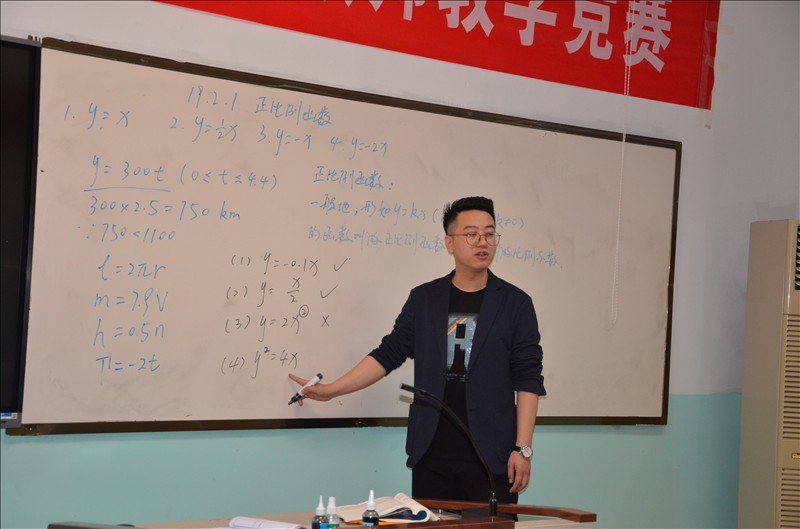 教学竞赛
19.2.1 正比例函数
1. y=x 2. y=½x 3. y=-x 4. y=-2x
y=300t (0≤t≤4.4)
300×2.5=750 km
∵750<1100
l=2πr
m=7.9V
h=0.5n
T=-2t
正比例函数:
一般地,形如y=kx(
≠0)
的函数叫做正比例函数
比例系数.
(1) y=-0.1x ✓
(2) y=x/2 ✓
(3) y=2x² ×
(4) y²=4x